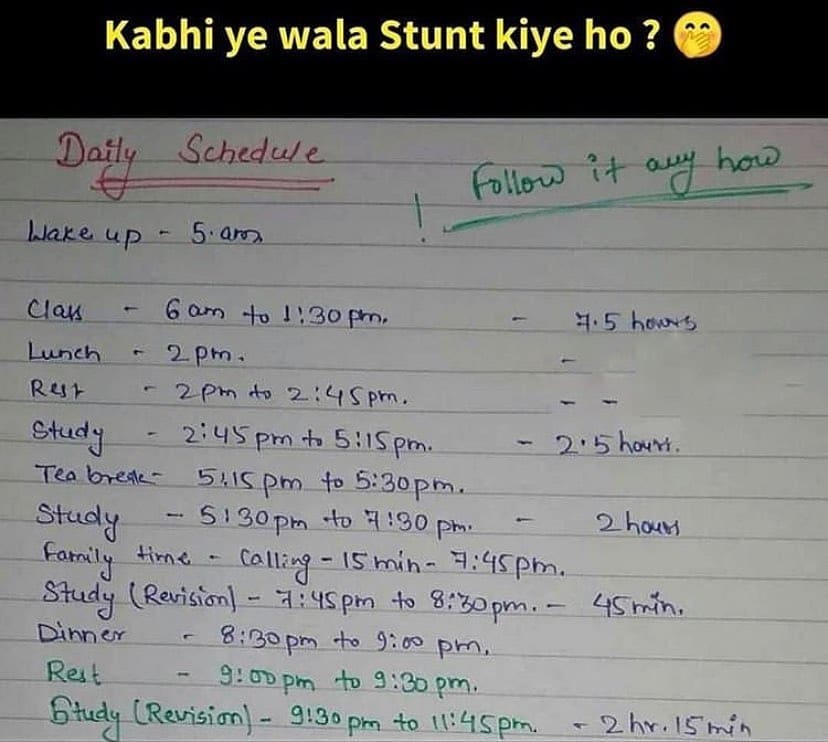 Kabhi ye wala Stunt kiye ho ? 🤭
Daily Schedule
Follow it any how !
Wake up - 5. am
Class - 6 am to 1:30 pm. - 7.5 hours
Lunch - 2 pm. -
Rest - 2 pm to 2:45 pm. - -
Study - 2:45 pm to 5:15 pm. - 2.5 hours.
Tea break - 5:15 pm to 5:30 pm.
Study - 5:30 pm to 7:30 pm. - 2 hours
Family time - Calling - 15 min - 7:45 pm.
Study (Revision) - 7:45 pm to 8:30 pm. - 45 min.
Dinner - 8:30 pm to 9:00 pm.
Rest - 9:00 pm to 9:30 pm.
Study (Revision) - 9:30 pm to 11:45 pm. - 2 hr. 15 min